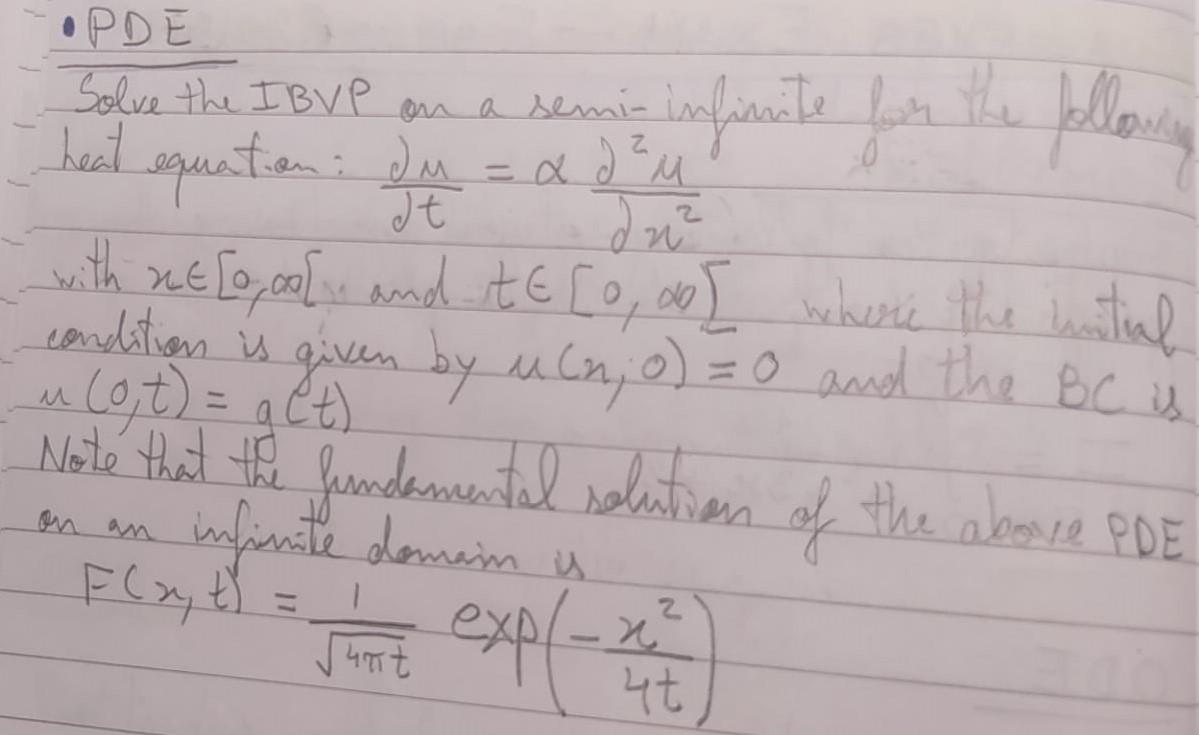 • PDE
Solve the IBVP on a semi-infinite for the following
heat equation: ∂u/∂t = α ∂²u/∂x²
with x∈[0,∞[ and t∈[0,∞[ where the initial
condition is given by u(x,0) = 0 and the BC is
u(0,t) = g(t)
Note that the fundamental solution of the above PDE
on an infinite domain is
F(x,t) = 1/√(4πt) exp(-x²/4t)